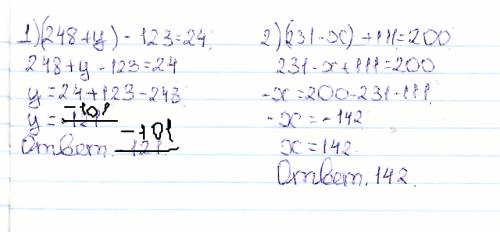 1)(248+y)-123=24
248+y-123=24
y=24+123-248
y=-101
Ответ. -101
2)(231-x)+111=200
231-x+111=200
-x=200-231-111
-x=-142
x=142
Ответ. 142.